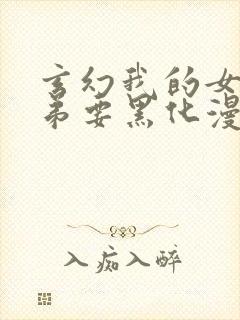 玄幻我的女
弟要黑化漫
入痴入醉